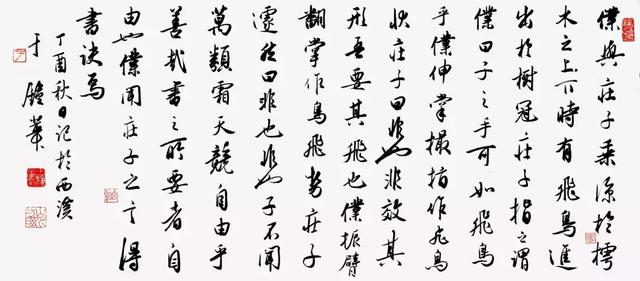 僕與莊子乘涼於樗
木之上下時有飛鳥進
出於樹冠莊子指之謂
僕曰子之手可如飛鳥
乎僕伸掌撮指作飛鳥
狀莊子曰非也非效其
形吾要其飛也僕振臂
翻掌作鳥飛勢莊子
遽然曰非也非也子不聞
萬類霜天競自由乎
善哉書之所要者自
由也僕聞莊子之言得
書訣焉
丁酉秋日記於西溪
于鐘華